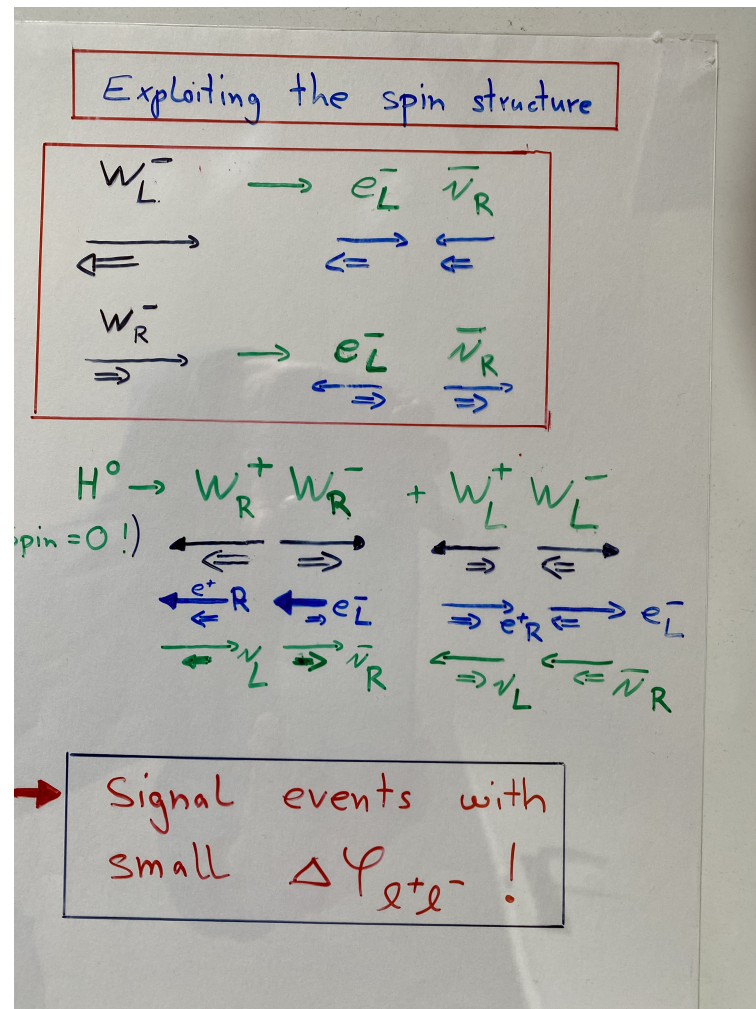 Exploiting the spin structure
W_L^- → e_L^- ν̄_R
W_R^- → e_L^- ν̄_R
H⁰ → W_R^+ W_R^- + W_L^+ W_L^-
pin = 0 !)
e⁺ R e_L^- e⁺R e_L^-
ν_L ν̄_R ν_L ν̄_R
Signal events with
small Δφ_ℓ⁺ℓ⁻ !